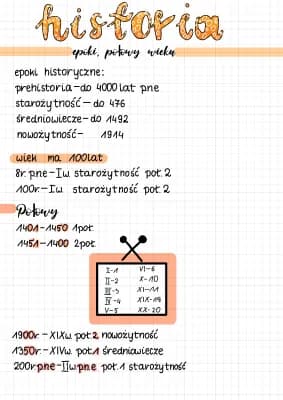 historia
epoki, połowy wieku
epoki historyczne:
prehistoria-do 4000 lat pne
starożytność-do 476
średniowiecze-do 1492
nowożytność- 1914
wiek ma 100lat
8r. pne-I w starożytność poł. 2
100r.-I w. starożytność poł. 2
Połowy
1401-1450 1poł.
1451-1400 2poł.
I-1 VI-6
II-2 X-10
III-3 XI-11
IV-4 XIX-19
V-5 XX-20
1900r.-XIXw. poł 2 nowożytność
1350r.-XIVw. poł.1 średniowiecze
200r pne-II w pne poł. 1 starożytność